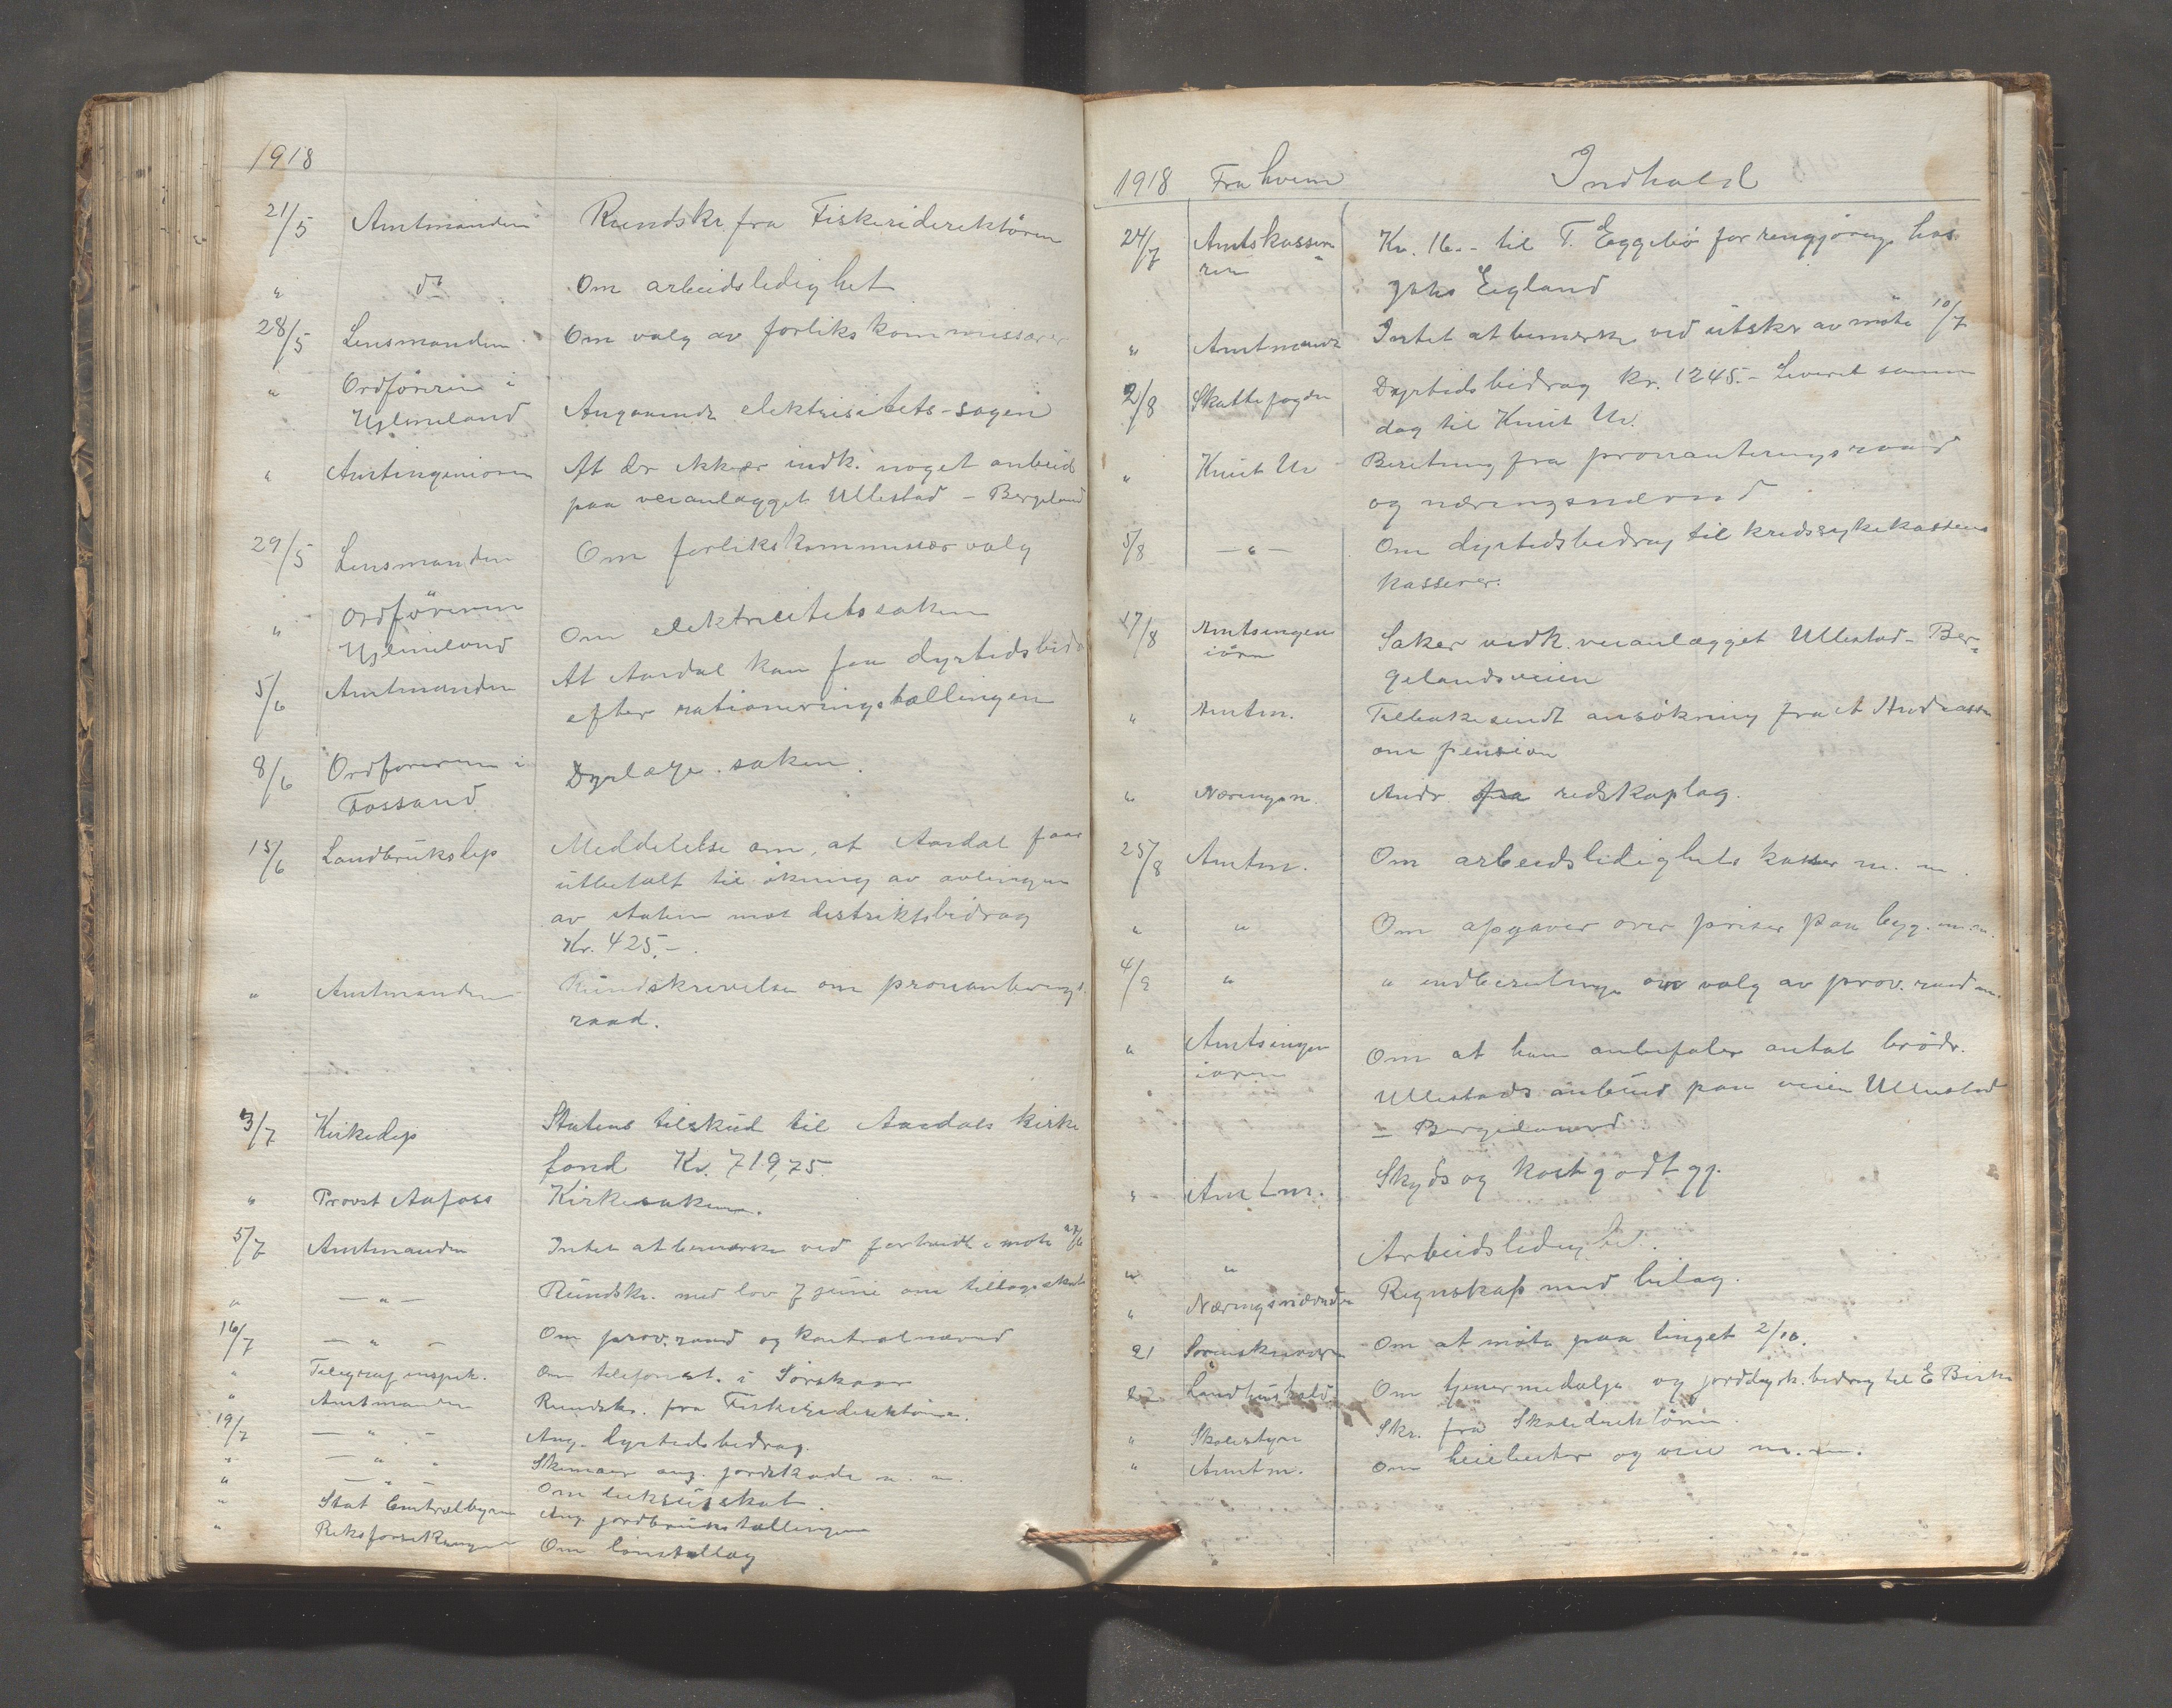 1918
21/5 Amtmanden Rundskr. fra Fiskeridirektören
" do Om arbeidsledighet
28/5 Lensmanden Om valg av forlikskommissærer
" Ordföreren i
Hjelmeland Angaaende elektrisitets-sagen
" Amtingeniøren At der ikke er indk. noget anbud
paa veianlægget Ullestad - Bergeland
29/5 Lensmanden Om forlikskommissær valg
" Ordföreren
Hjelmeland Om elektricitetssaken
5/6 Amtmanden At Aardal kan faa dyrtidsbidr
efter rationeringstællingen
8/6 Ordføreren i
Fossand Dyrlæge-saken.
15/6 Landbruksdep Meddelelse om, at Aardal faar
utbetalt til økning av avlingen
av staten mot distriktsbidrag
Kr. 425.-
" Amtmanden Rundskrivelse om provianterings
raad.
3/7 Kirkedep Statens tilskud til Aardals kirke
fond Kr. 719,75.
" Provst Aafoss Kirkesaken.
5/7 Amtmanden Intet at bemærke ved forhandl i møte 27/6
" — " — Rundskr. med lov 7 juni om tillægsskat
16/7 — " — Om prov.raad og kontrolnævnd
" Telegrafinspek. Om telefonst. i Sörskaar
" Amtmanden Rundskr. fra Fiskeridirektören.
19/7 — " — Ang. dyrtidsbidrag.
" — " — Skemaer ang. jordskade m. m.
" — " — Om luksusskat.
" Stat Centralbyraa Ang. jordbrukstællingen
" Riksforsikringen Om lönstillæg
1918 Fra hvem Indhold
24/7 Amtskasse-
reren Kr. 16.- til T. Eggebø for rengjøring hos
Johs Eigland
" Amtmand Intet at bemærke ved utskr av møte 10/7
2/8 Skattefogden Dyrtidsbidrag kr. 1245.- Leveret samme
dag til Knut Ur.
" Knut Ur Beretning fra provianteringsraad
og næringsnævnd
5/8 — " — Om dyrtidsbidrag til kredssykekassens
kasserer.
17/8 Amtsingen
iören Saker vedk. veianlægget Ullestad - Ber-
gelandsveien
" Amtm. Tilbakesendt ansökning fra A Andreassen
om pension
" Næringsn. Andr. fra redskaplag.
25/8 Amtm. Om arbeidsledighets kasser m. m.
" " Om opgaver over priser paa byg. m.m.
4/9 " " indberetninge over valg av prov. raad m.
" Amtsingen
iøren Om at han anbefaler antat brødr.
Ullestads anbud paa veien Ullestad
- Bergeland
" Amtm. Skyds og kostgodtgj.
" " Arbeidsledighet.
" Næringsnævnden Regnskap med bilag.
21 Sorenskriveren Om at møte paa tinget 2/10.
22 Landhushold. Om tjenermedalje og jorddyrk. bidrag til E Birke
" Skolestyre Skr. fra Skoledirektören.
" Amtm. Om